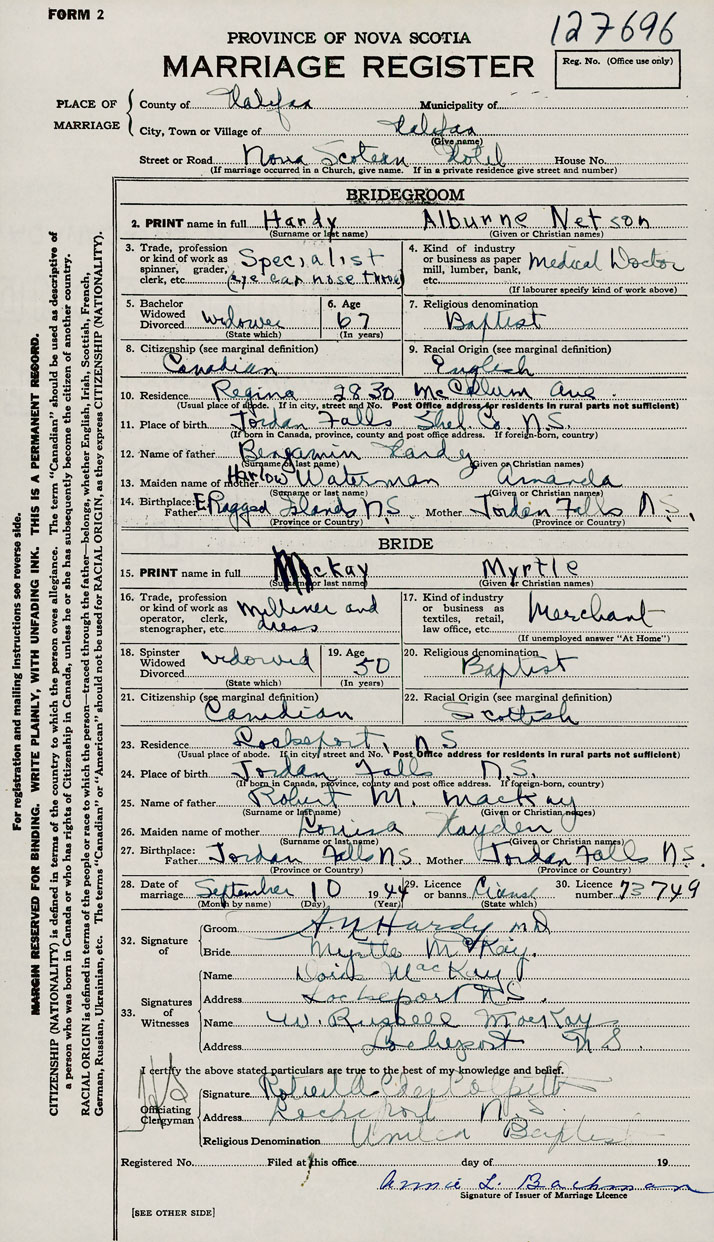 FORM 2
127696
PROVINCE OF NOVA SCOTIA
MARRIAGE REGISTER
Reg. No. (Office use only)
PLACE OF MARRIAGE
County of Halifax Municipality of
City, Town or Village of Halifax
(Give name)
Street or Road Nova Scotean Hotel House No.
(If marriage occurred in a Church, give name. If in a private residence give street and number)
BRIDEGROOM
2. PRINT name in full Hardy Alburne Netson
(Surname or last name) (Given or Christian names)
3. Trade, profession or kind of work as spinner, grader, clerk, etc. Specialist (eye ear nose throat)
4. Kind of industry or business as paper mill, lumber, bank, etc. Medical Doctor
(If labourer specify kind of work above)
5. Bachelor Widowed Divorced widower
(State which)
6. Age 67
(In years)
7. Religious denomination Baptist
8. Citizenship (see marginal definition) Canadian
9. Racial Origin (see marginal definition) English
10. Residence Regina 2830 McCallum Ave.
(Usual place of abode. If in city, street and No. Post Office address for residents in rural parts not sufficient)
11. Place of birth Jordan Falls Shel. Co. N.S.
(If born in Canada, province, county and post office address. If foreign-born, country)
12. Name of father Benjamin Hardy
(Surname or last name) (Given or Christian names)
13. Maiden name of mother Harlow Waterman Amanda
(Surname or last name) (Given or Christian names)
14. Birthplace: Father E. Ragged Islands N.S. Mother Jordan Falls N.S.
(Province or Country) (Province or Country)
BRIDE
15. PRINT name in full Mckay Myrtle
(Surname or last name) (Given or Christian names)
16. Trade, profession or kind of work as operator, clerk, stenographer, etc. milliner and dress
17. Kind of industry or business as textiles, retail, law office, etc. Merchant
(If unemployed answer "At Home")
18. Spinster Widowed Divorced widowed
(State which)
19. Age 50
(In years)
20. Religious denomination Baptist
21. Citizenship (see marginal definition) Canadian
22. Racial Origin (see marginal definition) Scottish
23. Residence Lockeport, N S
(Usual place of abode. If in city, street and No. Post Office address for residents in rural parts not sufficient)
24. Place of birth Jordan Falls N.S.
(If born in Canada, province, county and post office address. If foreign-born, country)
25. Name of father Robert M. MacKay
(Surname or last name) (Given or Christian names)
26. Maiden name of mother Louisa Hayden
(Surname or last name) (Given or Christian names)
27. Birthplace: Father Jordan Falls N.S. Mother Jordan Falls N.S.
(Province or Country) (Province or Country)
28. Date of marriage September 10 1944
(Month by name) (Day) (Year)
29. Licence or banns License
(State which)
30. Licence number 73749
32. Signature of
Groom A. N Hardy M.D
Bride Myrtle McKay.
33. Signatures of Witnesses
Name Doris MacKay
Address Lockeport N.S.
Name W. Russell MacKay
Address Lockeport N S.
I certify the above stated particulars are true to the best of my knowledge and belief.
Officiating Clergyman
Signature
Address Lockeport N.S
Religious Denomination United Baptist
Registered No. Filed at this office day of 19
Annie L. Backman
Signature of Issuer of Marriage Licence
[SEE OTHER SIDE]
For registration and mailing instructions see reverse side.
MARGIN RESERVED FOR BINDING. WRITE PLAINLY, WITH UNFADING INK. THIS IS A PERMANENT RECORD.
CITIZENSHIP (NATIONALITY) is defined in terms of the country to which the person owes allegiance. The term "Canadian" should be used as descriptive of
a person who was born in Canada or who has rights of Citizenship in Canada, unless he or she has subsequently become the citizen of another country.
RACIAL ORIGIN is defined in terms of the people or race to which the person—traced through the father—belongs, whether English, Irish, Scottish, French,
German, Russian, Ukrainian, etc. The terms "Canadian" or "American" should not be used for RACIAL ORIGIN, as they express CITIZENSHIP (NATIONALITY).